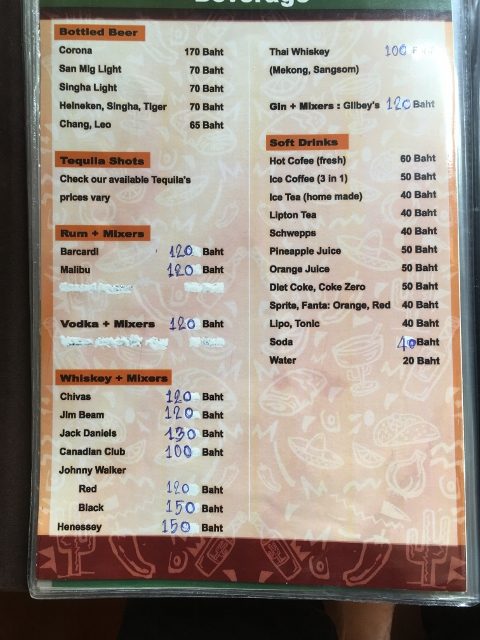 Beverage
Bottled Beer
Corona 170 Baht
San Mig Light 70 Baht
Singha Light 70 Baht
Heineken, Singha, Tiger 70 Baht
Chang, Leo 65 Baht
Tequila Shots
Check our available Tequila's
prices vary
Rum + Mixers
Barcardi 120 Baht
Malibu 120 Baht
Vodka + Mixers 120 Baht
Whiskey + Mixers
Chivas 120 Baht
Jim Beam 120 Baht
Jack Daniels 130 Baht
Canadian Club 100 Baht
Johnny Walker
Red 120 Baht
Black 150 Baht
Henessey 150 Baht
Thai Whiskey 100
(Mekong, Sangsom)
Gin + Mixers : Gilbey's 120 Baht
Soft Drinks
Hot Cofee (fresh) 60 Baht
Ice Coffee (3 in 1) 50 Baht
Ice Tea (home made) 40 Baht
Lipton Tea 40 Baht
Schwepps 40 Baht
Pineapple Juice 50 Baht
Orange Juice 50 Baht
Diet Coke, Coke Zero 50 Baht
Sprite, Fanta: Orange, Red 40 Baht
Lipo, Tonic 40 Baht
Soda 40 Baht
Water 20 Baht